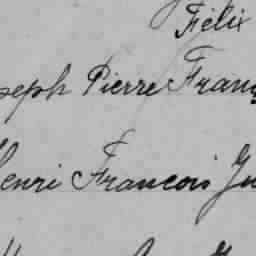 Félix
seph Pierre Fran
Henri Francois Ju